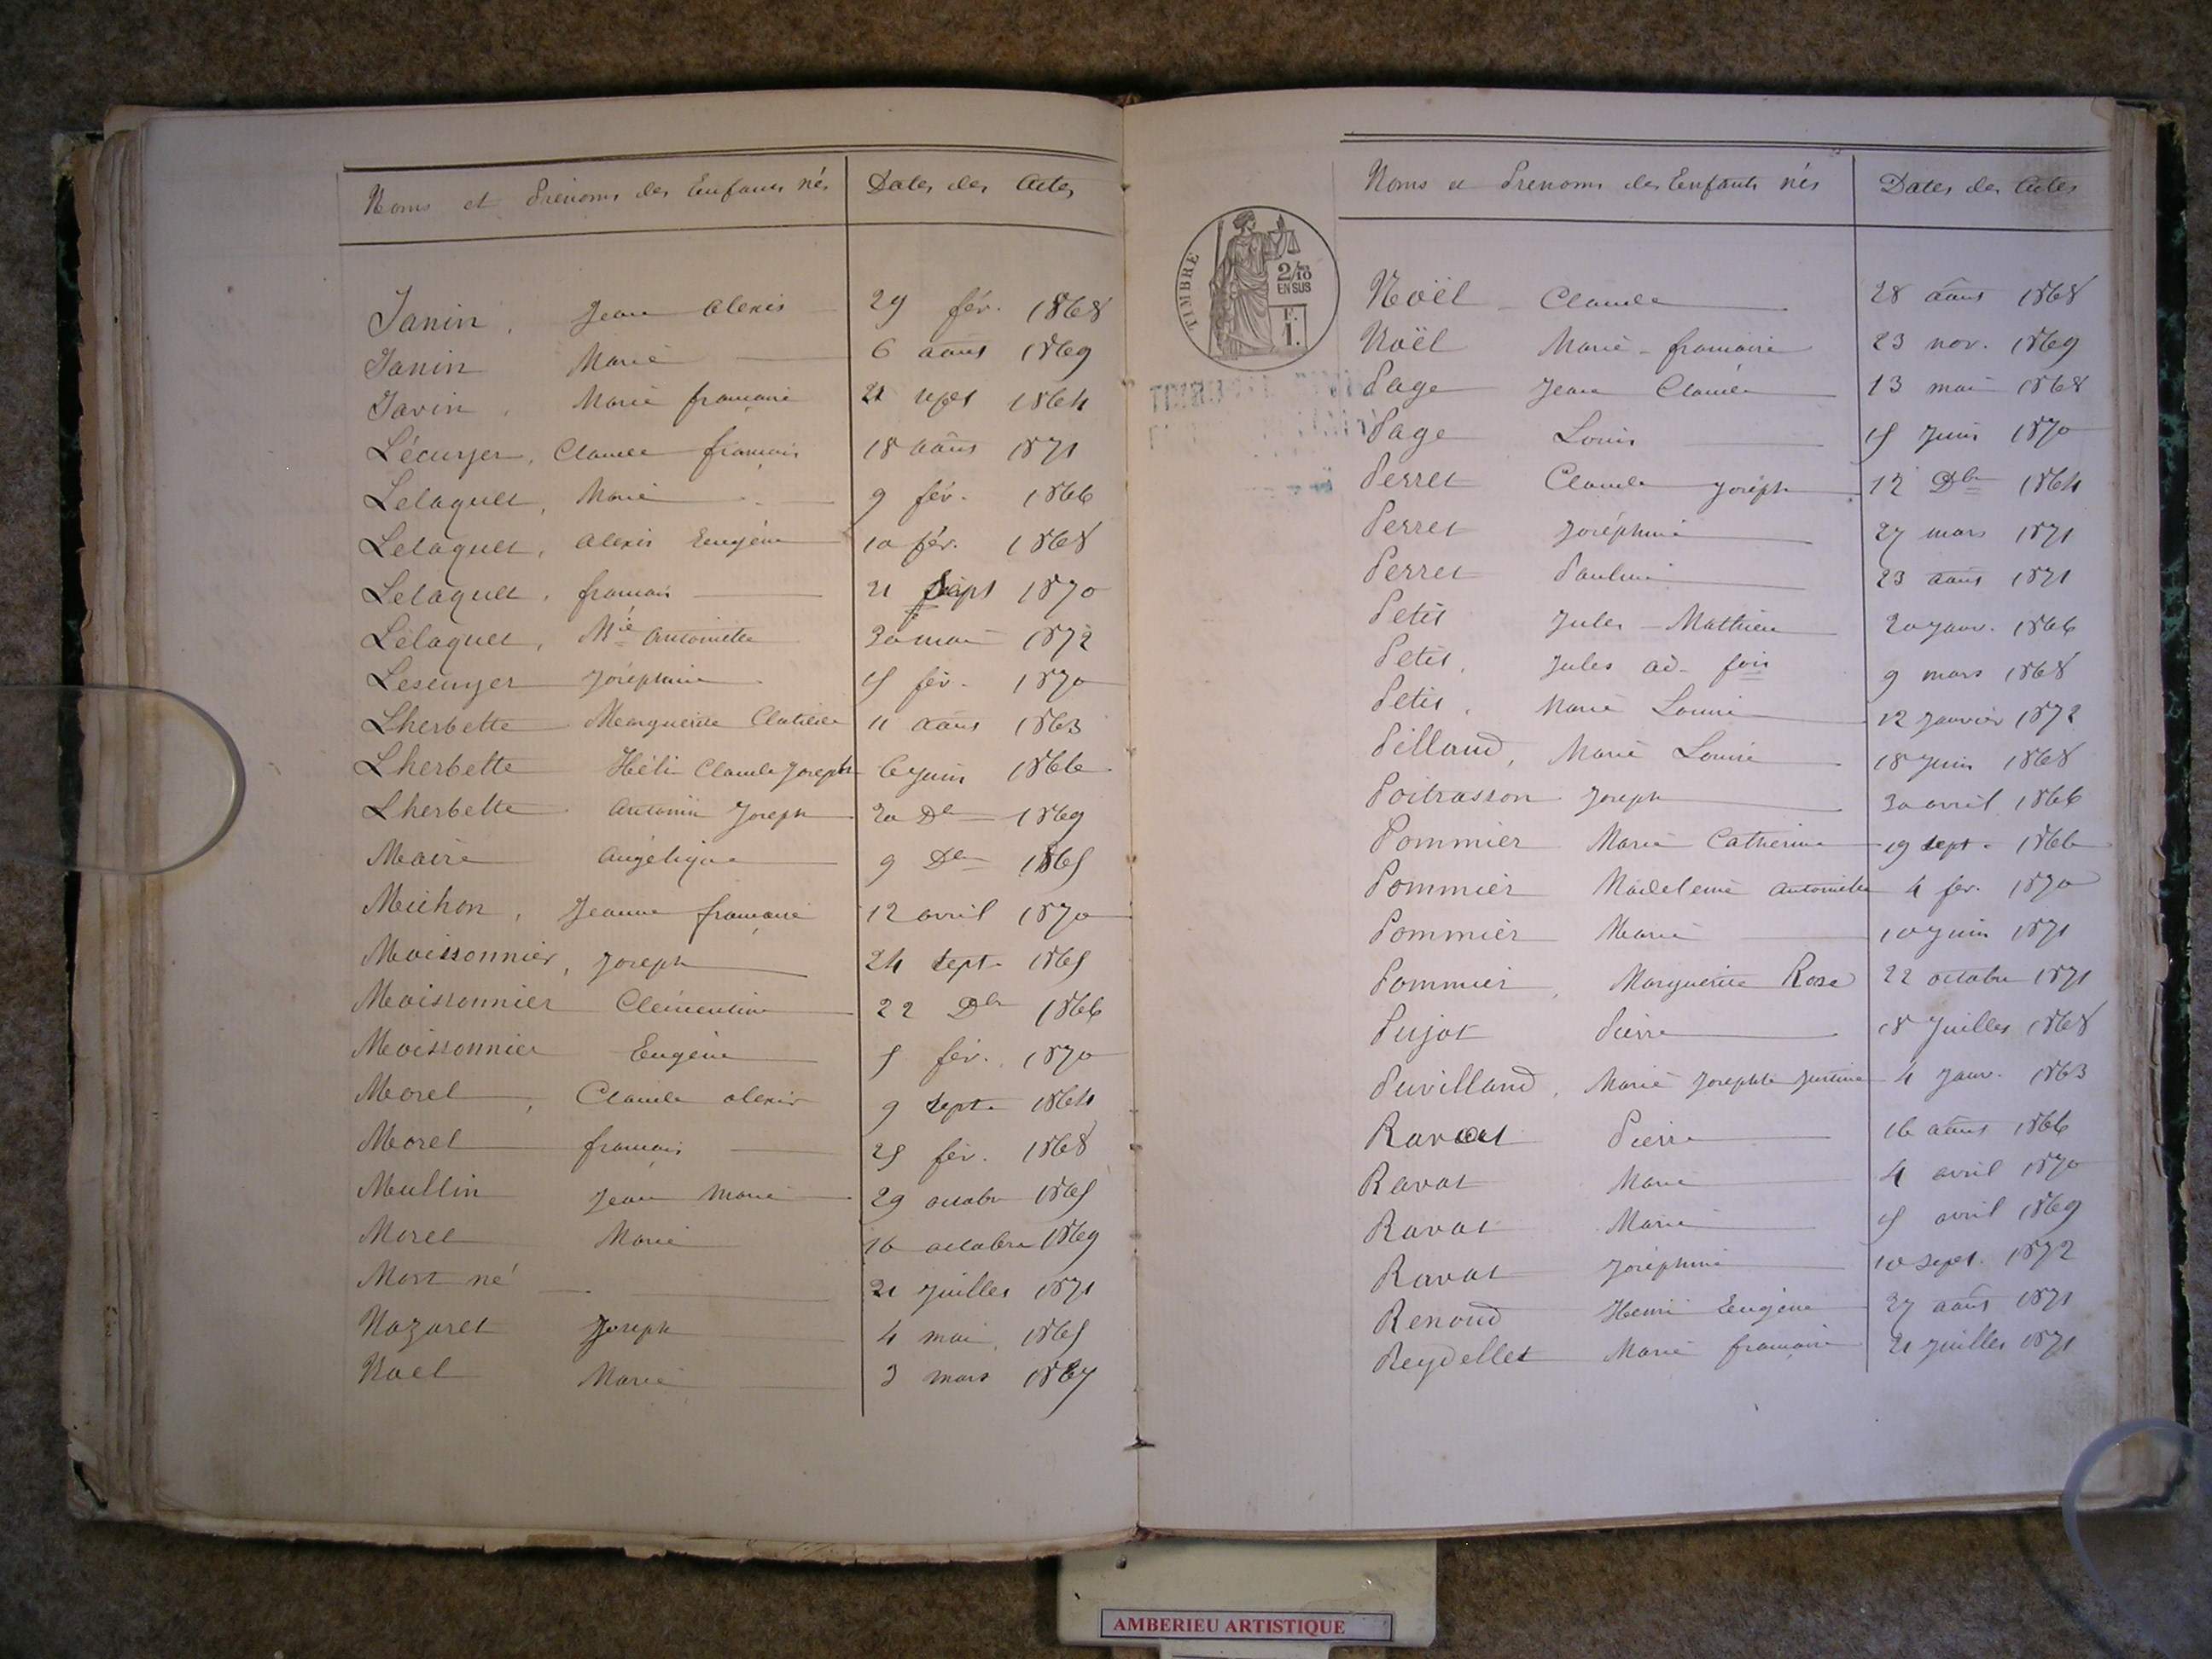 Noms et Prénoms des Enfants nés Dates des Actes
Janin, Jean Alexis 29 fév. 1868
Janin Marie 6 août 1869
Javin, Marie françoise 21 sept 1864
Lécuyer, Claude françois 18 août 1871
Lelaquet, Marie 9 fév. 1866
Lelaquet, Alexis Eugène 10 fév. 1868
Lelaquet, françois 21 sept 1870
Lélaquet, Mie Antoinette 30 mai 1872
Lescuyer Joséphine 15 fév. 1870
Lherbette Marguerite Clotilde 11 août 1863
Lherbette Héli Claude Joseph 6 juin 1866
Lherbette Antonin Joseph 20 Dbre 1869
Maire Angélique 9 Dbre 1865
Michon, Jeanne françoise 12 avril 1870
Moissonnier, Joseph 24 sept. 1865
Moissonnier Clémentine 22 Dbre 1866
Moissonnier Eugène 5 fév. 1870
Morel, Claude alexis 9 sept. 1864
Morel françois 25 fév. 1868
Mullin Jean Marie 29 octobre 1865
Morel Marie 16 octobre 1869
Mort né 21 Juillet 1871
Nazaret Joseph 4 mai 1865
Noel Marie 3 mars 1867
Noms et Prénoms des Enfants nés Dates des Actes
TIMBRE
2/10 EN SUS
F. 1.
Noël Claude 28 août 1868
Noël Marie-françoise 23 nov. 1869
Page Jean Claude 13 mai 1868
Page Louis 15 Juin 1870
Perret Claude Joseph 12 Dbre 1864
Perret Joséphine 27 mars 1871
Perret Pauline 23 août 1871
Petit Jules-Mathieu 20 Janv. 1866
Petit, Jules ad- fois 9 mars 1868
Petit, Marie Louise 12 Janvier 1872
Pilland, Marie Louise 18 Juin 1868
Poitrasson Joseph 30 avril 1866
Pommier Marie Catherine 19 sept. 1866
Pommier Madeleine Antoinette 4 fev. 1870
Pommier Marie 10 Juin 1871
Pommier, Marguerite Rose 22 octobre 1871
Pujot Pierre 18 Juillet 1868
Puvilland, Marie Josephte Justine 4 Janv. 1863
Ravat Pierre 16 août 1866
Ravat Marie 4 avril 1870
Ravat Marie 15 avril 1869
Ravat Joséphine 10 sept. 1872
Renoud Henri Eugène 27 août 1871
Reydellet Marie françoise 21 Juillet 1871
AMBERIEU ARTISTIQUE